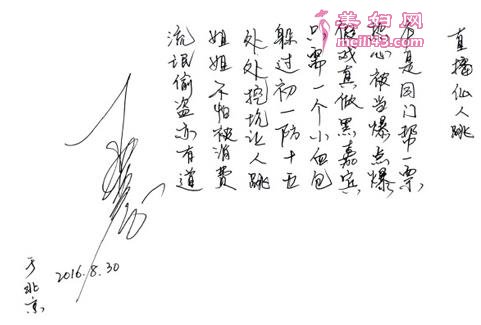 美妇网
直播仙人跳
本是同门帮一票
心被当爆点爆
假戏真做黑嘉宾
只 一个小血包
躲过初一防十五
处处挖坑让人跳
姐姐不怕被消费
流氓偷盗亦有道
2016.8.30
于北京